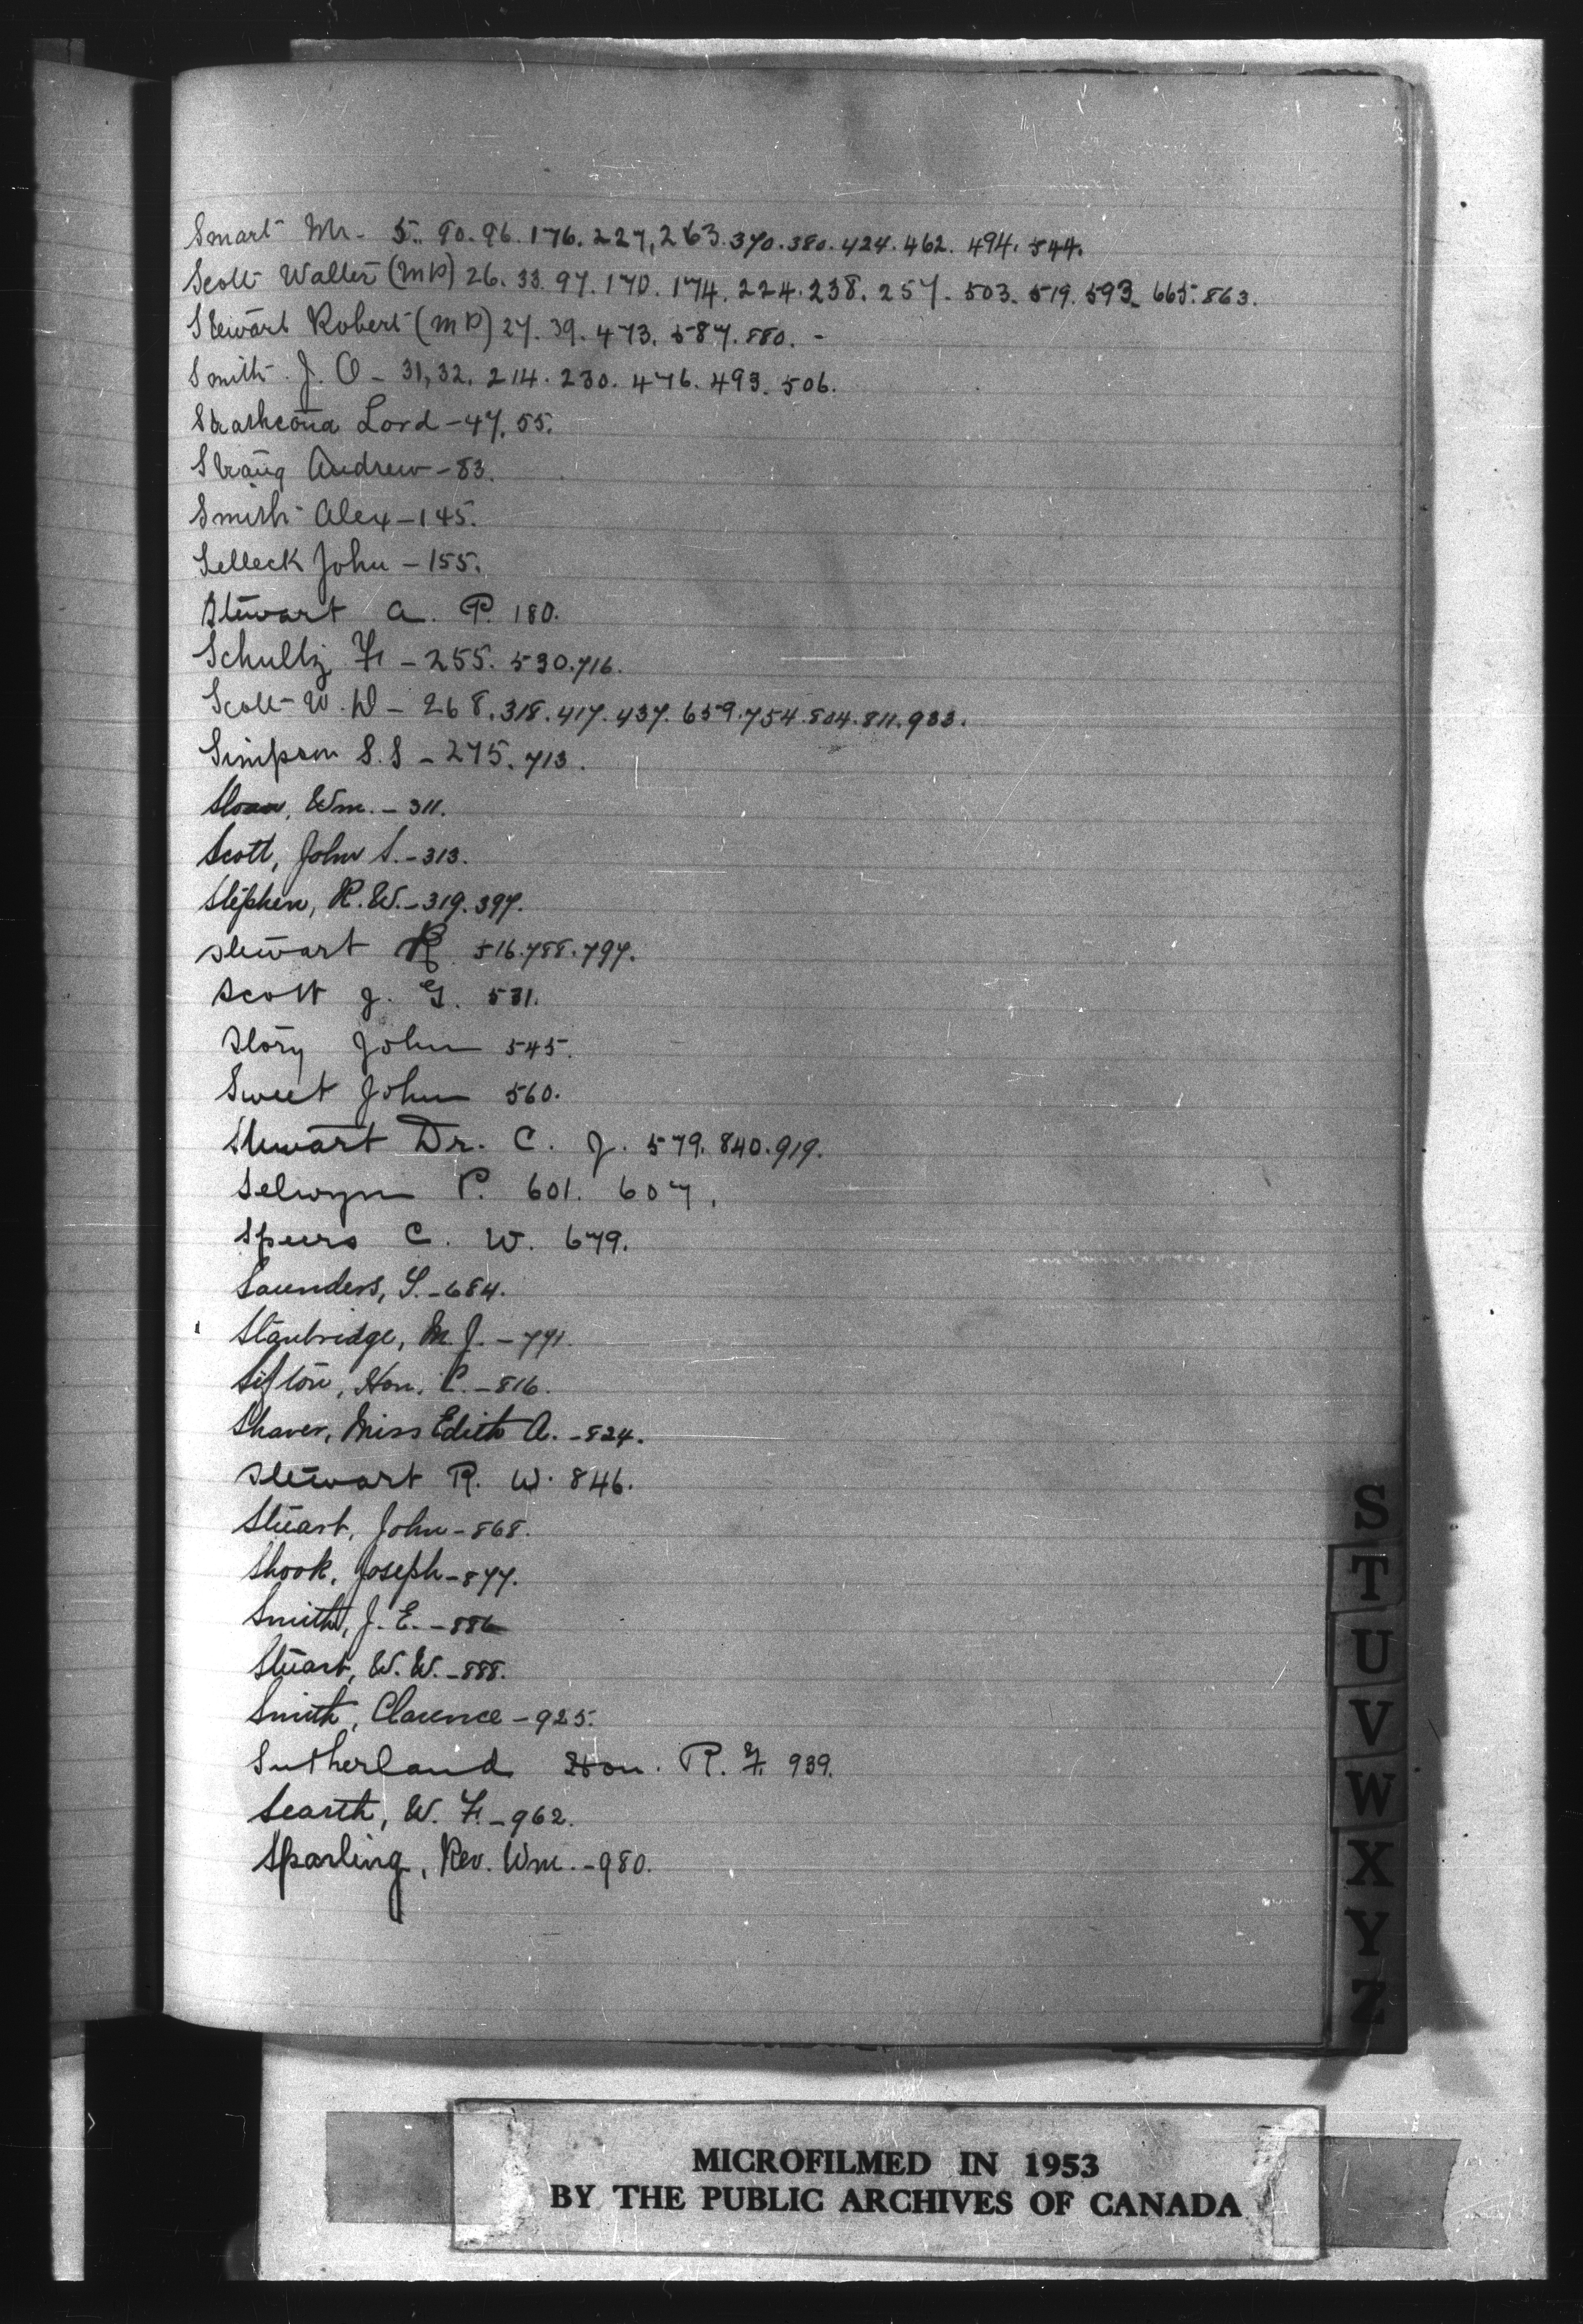 Smart Mr. 5. 90. 96. 176. 227, 263. 370. 380. 424. 462. 494. 544.
Scott Walter (MP) 26. 33. 97. 170. 174. 224. 238. 257. 503. 519. 593. 665. 863.
Stewart Robert (MP) 27. 39. 473. 587. 880. -
Smith J. O - 31, 32. 214. 230. 476. 493. 506.
Strathcona Lord - 47. 55.
Strang Andrew - 83.
Smith Alex - 145.
Selleck John - 155.
Stewart A. P. 180.
Schultz F. - 255. 530. 716.
Scott W. D - 268. 318. 417. 437. 659. 754. 804. 811. 933.
Simpson S. S - 275. 713.
Sloan, Wm. - 311.
Scott, John S. - 313.
Stephen, R. W. - 319. 397.
Stewart R 516. 788. 797.
Scott J. G. 531.
Story John 545.
Sweet John 560.
Stewart Dr. C. J. 579. 840. 919.
Selwyn P. 601. 607.
Speers C. W. 679.
Saunders, S. - 684.
Stanbridge, M. J. - 791.
Sifton, Hon. C. - 816.
Shaver, Miss Edith A. - 824.
Stewart R. W. 846.
Stuart, John - 868.
Shook, Joseph - 877.
Smith, J. E. - 886
Stuart, W. W. - 888.
Smith, Clarence - 925.
Sutherland Hon. R. F. 939.
Scarth, W. F. - 962.
Sparling, Rev. Wm. - 980.
S
T
U
V
W
X
Y
Z
MICROFILMED IN 1953
BY THE PUBLIC ARCHIVES OF CANADA